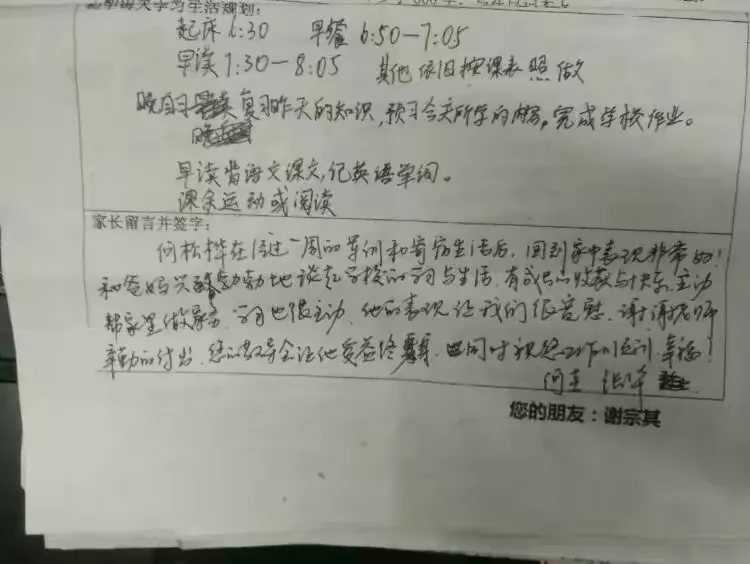 每天学习生活规划:
起床6:30 早餐6:50-7:05
早读7:30-8:05 其他依旧按课表照做
晚自习复习昨天的知识,预习今天所学的内容,完成学校作业。
早读背语文课文,记英语单词。
课余运动或阅读
家长留言并签字:
何松桦在经过一周的军训和寄宿生活后,回到家中表现非常好!
和爸妈兴致勃勃地谈起学校的学习与生活,有成长的收获与快乐,主动
帮家里做家务,学习也很主动,他的表现让我们很欣慰,谢谢老师
辛勤的付出,您的教导会让他受益终身,也同时祝您工作顺利,幸福!
您的朋友:谢宗其